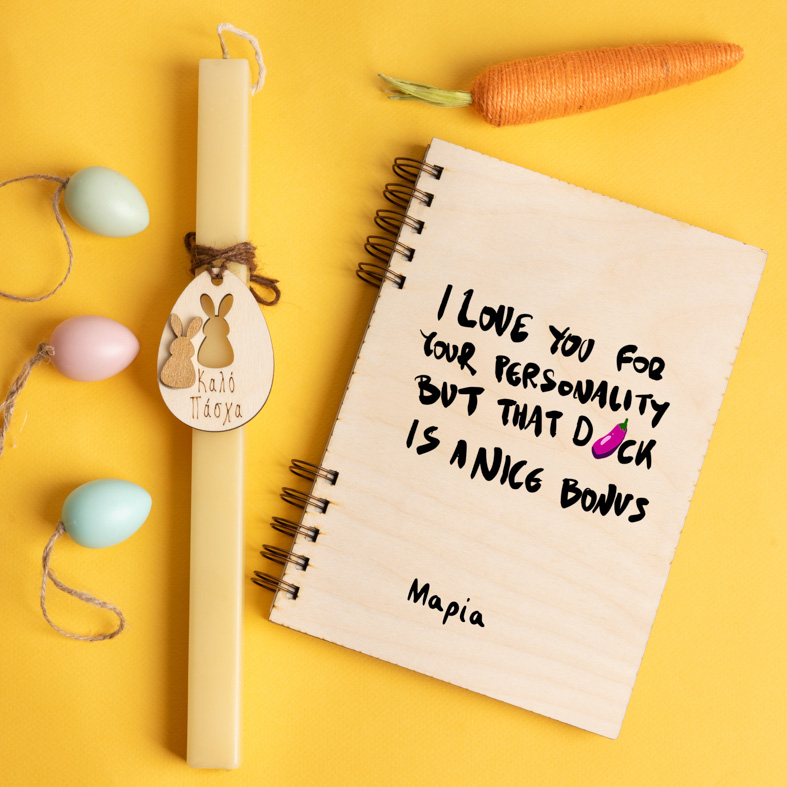 Καλό
Πάσχα
I LOVE YOU FOR
YOUR PERSONALITY
BUT THAT D🍆CK
IS A NICE BONUS
Μαρία